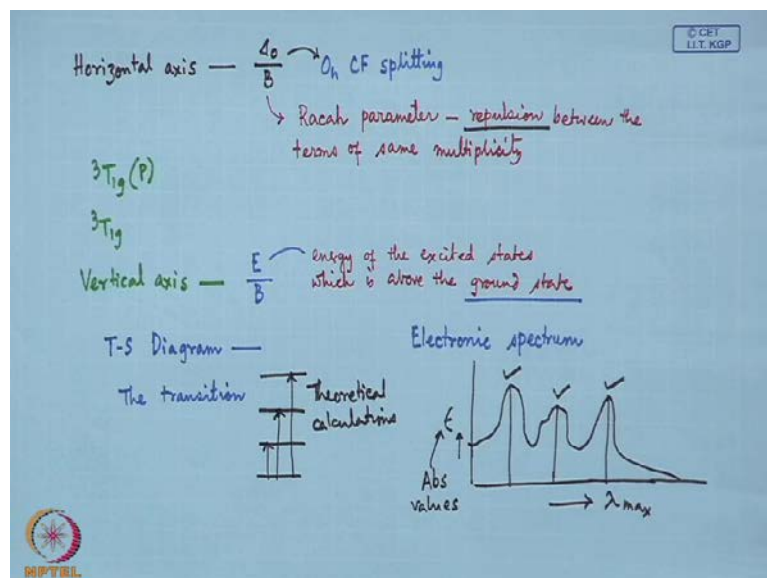 © CET
I.I.T. KGP
Horizontal axis — Δo/B → Oh CF splitting
Racah parameter – repulsion between the
terms of same multiplicity
³T₁g (P)
³T₁g
Vertical axis — E/B energy of the excited states
which is above the ground state
T-S Diagram — Electronic spectrum
The transition Theoretical
calculations
ε
Abs
values
→ λ max
NPTEL